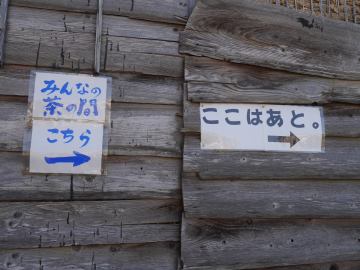 みんなの
茶の間
こちら
→
ここはあと。
→